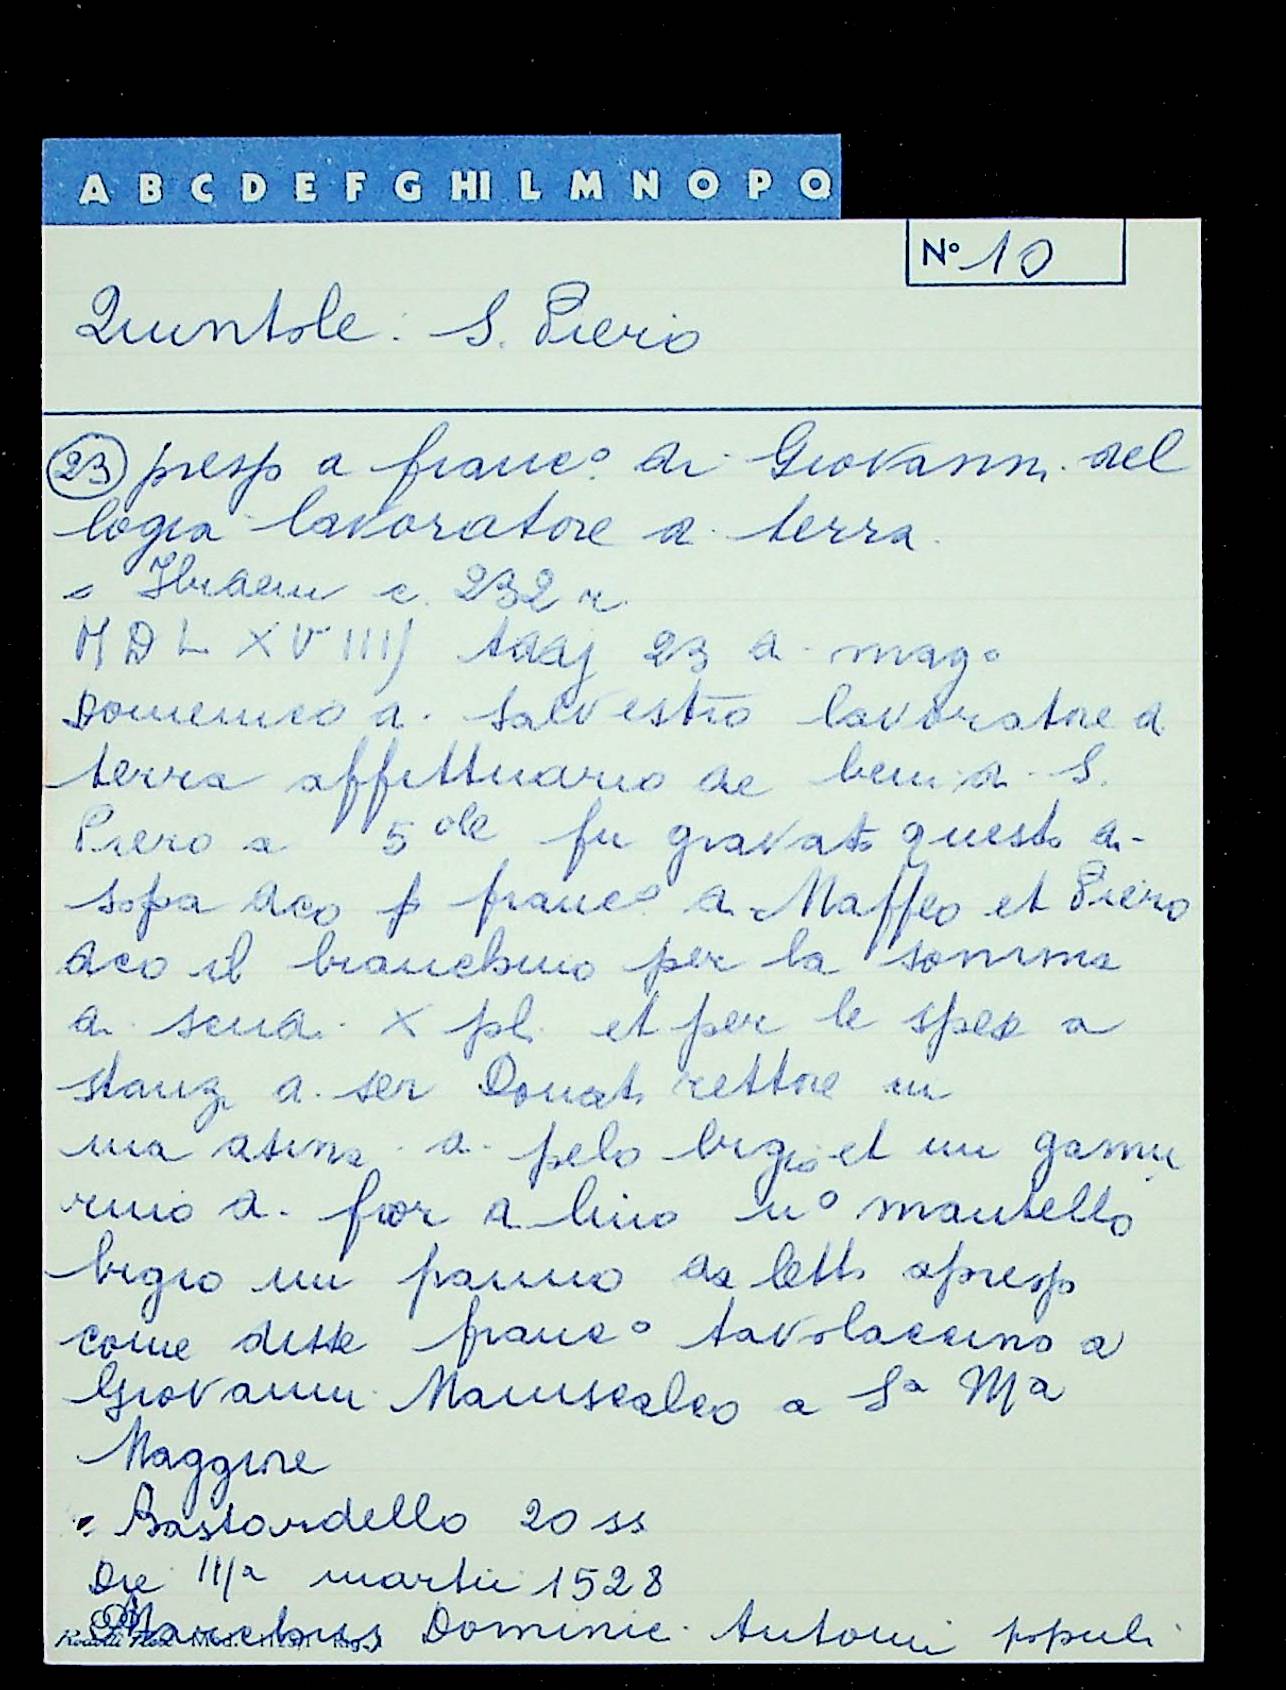 A B C D E F G HI L M N O P Q
N° 10
Quintole: S. Piero
23 presp a franc° di Giovanni del
logia lavoratore di terra
= Ibidem c. 232 r.
MDLXVIIIJ addj 23 di mag°
Domenico di Salvestro lavoratore di
terra affittuario de beni di S.
Piero a 5ole fu gravato questo di
sopa dco p franc° di Maffeo et Piero
dco il branchino per la somma
di scudi X pl. et per le spex a
stanz di ser Donato rettore in
una asina di pelo bigio et un gamu
rrino di fior di lino u° mantello
bigio un panno da letto apresp
come disse franc° tavolaccino a
Giovanni Maniscalco a Sa Ma
Maggiore
= Bastardello 20 ss
Die IIJa martii 1528
Dominic Antonii populi